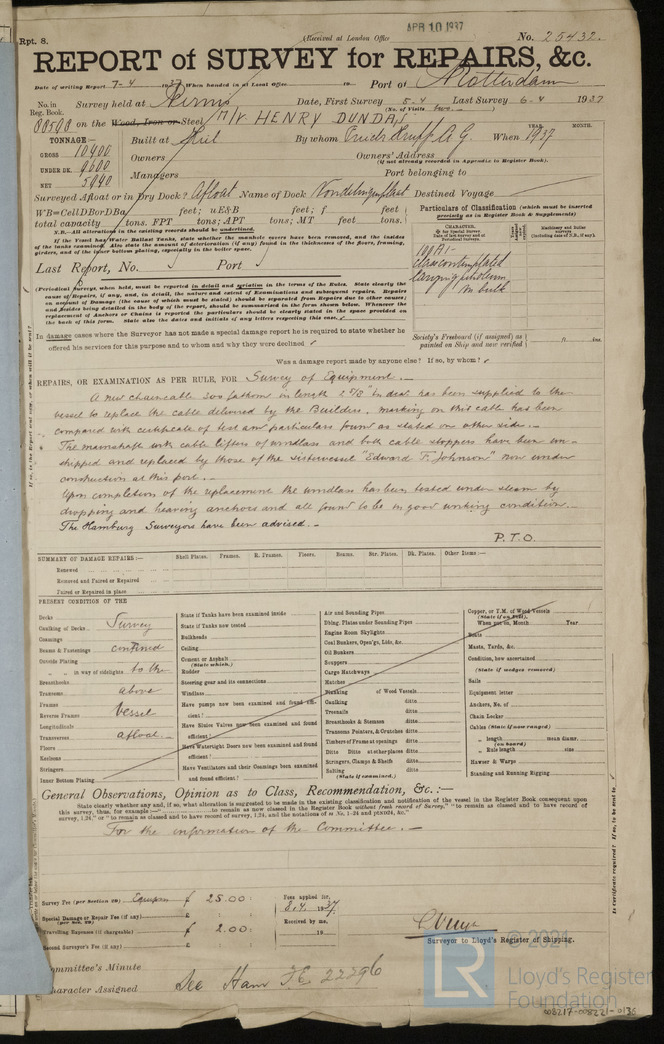 Rpt. 8.
(Received at London Office
APR 10 1937
No. 25432.
REPORT of SURVEY for REPAIRS, &c.
Date of writing Report 7-4 1937 When handed in at Local Office 19 Port of Rotterdam
No. in Reg. Book. Survey held at Pernis Date, First Survey 5-4 Last Survey 6-4 1937
(No. of Visits two.)
on the Wood, Iron or Steel M/V HENRY DUNDAS
TONNAGE:—
GROSS 10400
UNDER DK. 9600
NET 5940
Built at Kiel By whom Fried. Krupp A.G. When 1937
YEAR. MONTH.
Owners Owners' Address
(if not already recorded in Appendix to Register Book).
Managers Port belonging to
Surveyed Afloat or in Dry Dock? Afloat Name of Dock Vondelingenplaat Destined Voyage
WB=CellDBorDBa feet; uE&B feet; f feet
total capacity tons. FPT tons; APT tons; MT feet tons.
N.B.—All alterations in the existing records should be underlined.
If the Vessel has Water Ballast Tanks, state whether the manhole covers have been removed, and the insides of the tanks examined. Also state the amount of deterioration (if any) found in the thicknesses of the floors, framing, girders, and of the inner bottom plating, especially in the boiler space.
Last Report, No. Port
Particulars of Classification (which must be inserted precisely as in Register Book & Supplements)
CHARACTER.
100A1-
class contemplated
carrying petroleum
in bulk
Society's Freeboard (if assigned) as painted on Ship and now verified ft. ins.
(Periodical Surveys, when held, must be reported in detail and seriatim in the terms of the Rules. State clearly the cause of Repairs, if any, and, in detail, the nature and extent of Examinations and subsequent repairs. Repairs on account of Damage (the cause of which must be stated) should be separated from Repairs due to other causes; and besides being detailed in the body of the report, should be summarized in the form shown below. Whenever the replacement of Anchors or Chains is reported the particulars should be clearly stated in the space provided on the back of this form. State also the dates and initials of any letters respecting this case.
In damage cases where the Surveyor has not made a special damage report he is required to state whether he offered his services for this purpose and to whom and why they were declined
Was a damage report made by anyone else? If so, by whom?
REPAIRS, OR EXAMINATION AS PER RULE, FOR Survey of Equipment.—
A new chaincable 300 fathom in length 2 5/8" in dia. has been supplied to the
vessel to replace the cable delivered by the Builders. Marking on this cable has been
compared with certificate of test and particulars found as stated on other side.—
The mainshaft with cable lifters of windlass and both cable stoppers have been un-
shipped and replaced by those of the sistervessel "Edward F. Johnson" now under
construction at this port.—
Upon completion of the replacement the windlass has been tested under steam by
dropping and heaving anchors and all found to be in good working condition.—
The Hamburg Surveyors have been advised.—
P.T.O.
SUMMARY OF DAMAGE REPAIRS:— Shell Plates. Frames. R. Frames. Floors. Beams. Str. Plates. Dk. Plates. Other Items:—
Renewed
Removed and Faired or Repaired
Faired or Repaired in place
PRESENT CONDITION OF THE
Decks
Caulking of Decks
Coamings
Beams & Fastenings
Outside Plating
" " in way of sidelights
Breasthooks
Transoms
Frames
Reverse Frames
Longitudinals
Transverses
Floors
Keelsons
Stringers
Inner Bottom Plating
Survey
confined
to the
above
Vessel
afloat.—
State if Tanks have been examined inside
State if Tanks now tested
Bulkheads
Ceiling
Cement or Asphalt
(State which.)
Rudder
Steering gear and its connections
Windlass
Have pumps now been examined and found efficient?
Have Sluice Valves now been examined and found efficient?
Have Watertight Doors now been examined and found efficient?
Have Ventilators and their Coamings been examined and found efficient?
Air and Sounding Pipes
Dblng. Plates under Sounding Pipes
Engine Room Skylights
Coal Bunkers, Open'gs, Lids, &c.
Oil Bunkers
Scuppers
Cargo Hatchways
Hatches
Planking of Wood Vessels
Caulking ditto
Treenails ditto
Breasthooks & Stemson ditto
Transoms Pointers, & Crutches ditto
Timbers of Frame at openings ditto
Ditto Ditto at other places ditto
Stringers, Clamps & Shelfs ditto
Salting ditto
(State if examined.)
Copper, or Y.M. of Wood Vessels
(State if on Felt).
When put on, Month Year
Boats
Masts, Yards, &c.
Condition, how ascertained
(State if wedges removed)
Sails
Equipment letter
Anchors, No. of
Chain Locker
Cables (State if now ranged)
" length mean diamr.
(on board)
" Rule length size
Hawser & Warps
Standing and Running Rigging
General Observations, Opinion as to Class, Recommendation, &c.:—
State clearly whether any and, if so, what alteration is suggested to be made in the existing classification and notification of the vessel in the Register Book consequent upon
For the information of the Committee.—
Survey Fee (per Section 29) Equipm. £ 25.00
Special Damage or Repair Fee (if any) £
Travelling Expenses (if chargeable) £ 2.00
Second Surveyor's Fee (if any) £
Fees applied for,
8.4. 1937
Received by me,
19
Surveyor to Lloyd's Register of Shipping.
Committee's Minute
Character Assigned See Ham FE 22296
© 2021
LR
Lloyd's Register
Foundation
008217-008221-0136